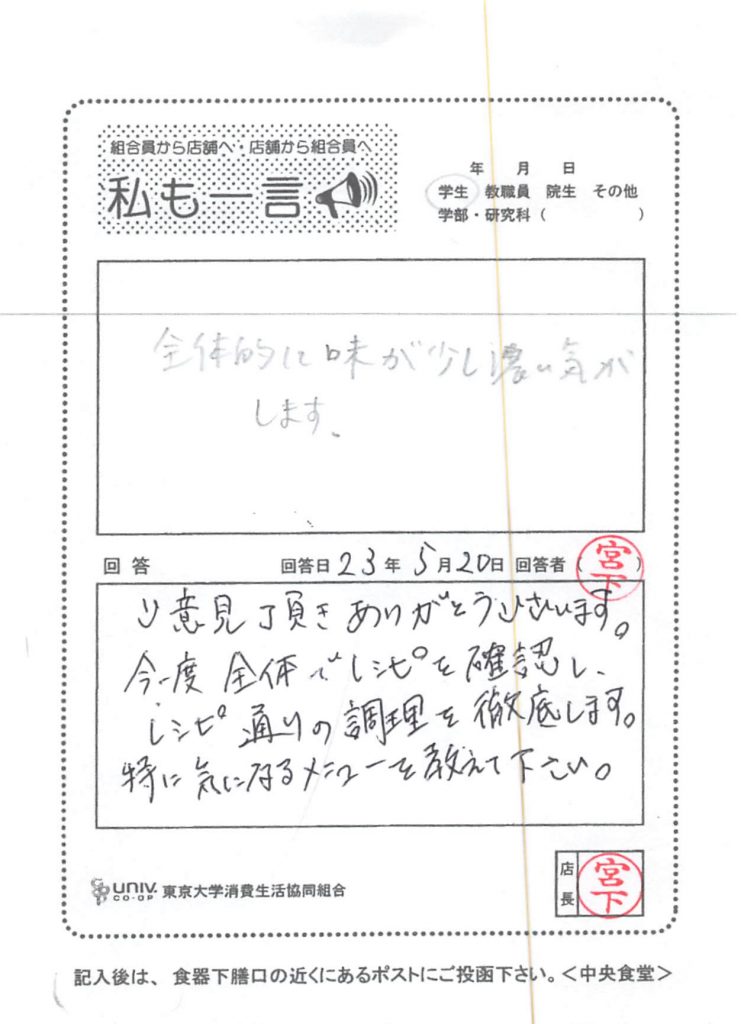 組合員から店舗へ・店舗から組合員へ
私も一言
年 月 日
学生 教職員 院生 その他
学部・研究科（ ）
全体的に味が少し濃い気が
します。
回答 回答日 23年 5月20日 回答者（宮下）
ご意見頂きありがとうございます。
今一度 全体でレシピを確認し、
レシピ通りの調理を徹底します。
特に気になるメニューを教えて下さい。
UNIV. CO-OP 東京大学消費生活協同組合
店長 宮下
記入後は、食器下膳口の近くにあるポストにご投函下さい。＜中央食堂＞